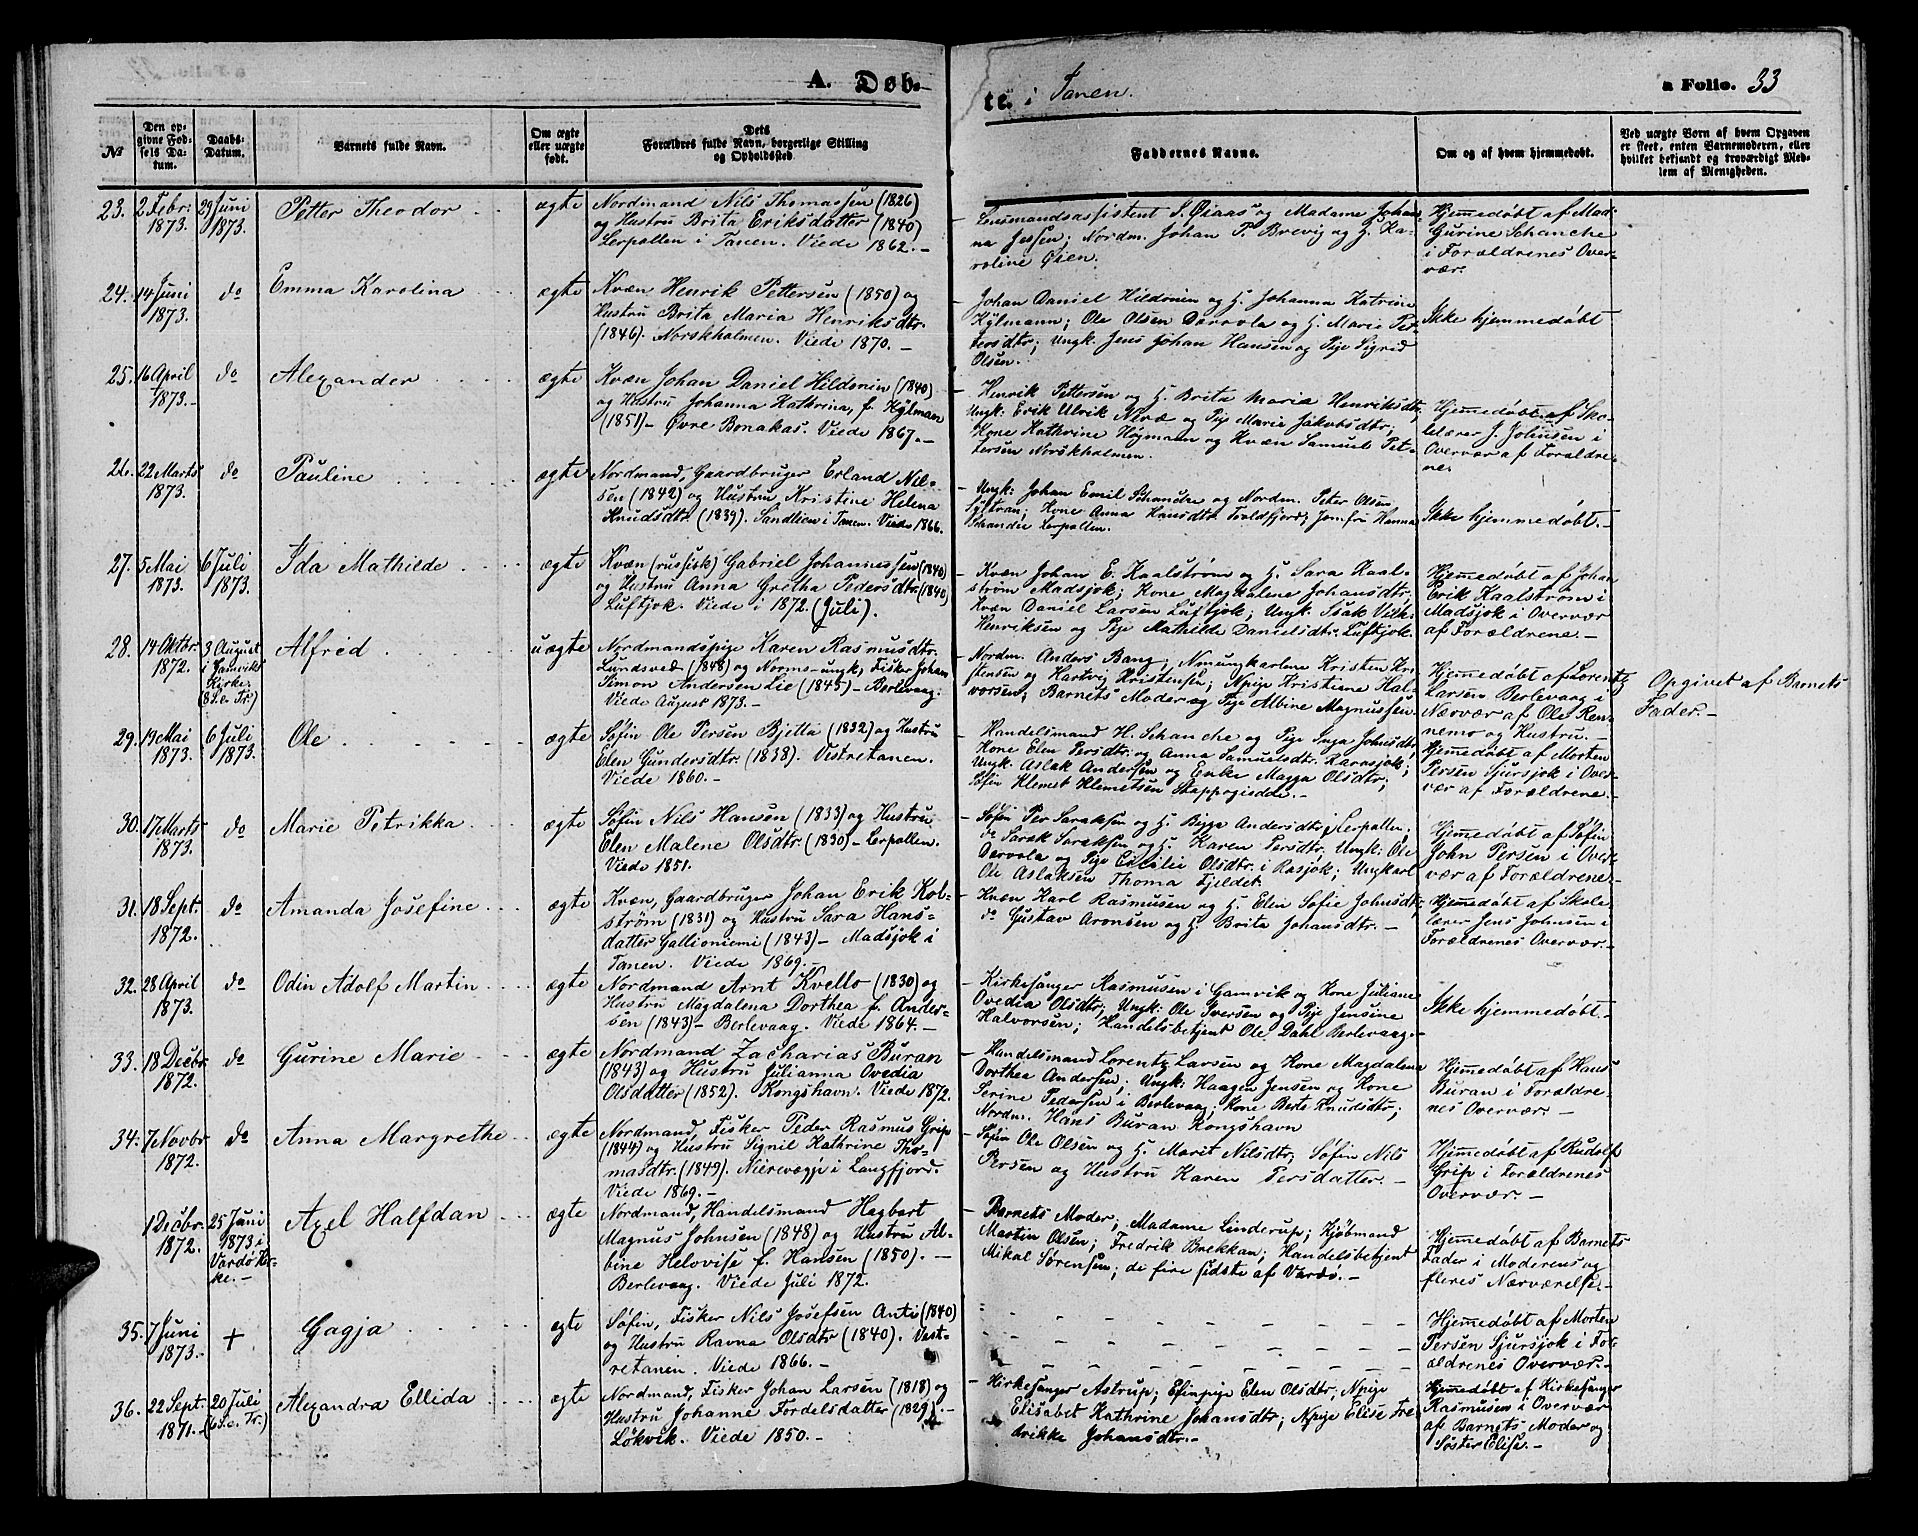 A. Døb-
te. i Tanen.
a Folio. 33
№
Den op-
givne Fød-
sels Da-
tum.
Daabs-
Datum.
Barnets fulde Navn.
Om ægte
eller uægte
født.
Dets
Forældres fulde Navn, borgerlige Stilling
og Opholdssted.
Faddernes Navne.
Om og af hvem hjemmedøbt.
Ved uægte Børn af hvem Opgaven
er skeet, enten Barnemoderen, eller
hvilket bekjendt og troværdigt Med-
lem af Menigheden.
23. 2 Febr. 1873. 29 Juni 1873. Petter Theodor ægte
Nordmand Nils Thomassen (1826)
og Hustru Brita Eriksdatter (1840)
Lerpollen i Tanen. Viede 1862.-
Lensmandsassistent I. Øiaas og Madame Johan-
na Jessen; Nordm. Johan P. Brevig og H. Ka-
roline Øien.
Hjemmedøbt af Mad:
Gurine Schanche
i Forældrenes Over-
vær.
24. 14 Juni 1873. do Emma Karolina ægte
Kvæn Henrik Pettersen (1850) og
Hustru Brita Maria Henriksdtr.
(1846). Norskholmen. Viede 1870.-
Johan Daniel Hildonen og H. Johanna Katrine
Kylmann; Ole Olsen Dervola og H. Marie Pet-
tersdtr; Ungk. Jens Johan Hansen og Pige Sigrid
Olsen.
Ikke hjemmedøbt
25. 16 April 1873. do Alexander ægte
Kvæn Johan Daniel Hildonin (1840)
og Hustru Johanna Kathrina, f. Kylmann
(1851)- Øvre Bonakas. Viede 1867.-
Henrik Pettersen og H. Brita Maria Henriksdtr,
Ungk: Erik Ulrik Nivæ og Pige Marie Jakobsdtr;
Kone Kathrine Højmann og Kvæn Samuel Pet-
tersen Norskholmen.
Hjemmedøbt af Sko-
lelærer J. Johnsen i
Overvær af Forældre-
ne.
26. 22 Marts 1873. do Pauline ægte
Nordmand, Gaardbruger Erland Nil-
sen (1842) og Hustru Kristine Helena
Knudsdtr (1839). Sandlien i Tanen. Viede 1866.
Ungk: Johan Emil Schanche og Nordm. Peter Olsen
Kone Anna Hansdtr Troldfjord; Jomfru Hanna
Schanche Lerpollen.
Ikke hjemmedøbt.-
27. 5 Mai 1873. 6 Juli 1873. Ida Mathilde ægte
Kvæn (russisk) Gabriel Johannessen (1840)
og Hustru Anna Gretha Pedersdtr. (1840)
Luftjok. Viede i 1872. (Juli).
Kvæn Johan E. Kaalstrøm og H. Sara Kaal-
strøm Madsjok; Kone Magdalene Johansdtr;
Kvæn Daniel Larsen Luftjok; Ungk. Isak Vilh.
Henriksen og Pige Mathilde Danielsdtr. Luftjok.
Hjemmedøbt af Johan
Erik Kaalstrøm i
Madsjok i Overvær
af Forældrene.-
28. 14 Oktbr. 1872. 3 August i Gamvik Kirke. (8 S.e. Tr.) Alfred uægte
Nordmandspige Karen Rasmusdtr.
Lundsved (1848) og Norms-ungk, Fisker Johan
Simon Andersen Lie (1845)- Berlevaag.
Viede August 1873.-
Nordm. Anders Bang; Nmungkarlene Kristen Kri-
stensen og Hartvig Kristensen; Npige Kristiane Hal-
vorsen; Barnets Moder og Pige Albine Magnussen.
Hjemmedøbt af Lorentz
Larsen Berlevaag i
Nærvær af Ole Ren-
nemo og Hustru.-
Opgivet af Barnets
Fader.-
29. 19 Mai 1873. 6 Juli 1873. Ole ægte
Søfin Ole Persen Bjitta (1832) og Hustru
Elen Gundersdtr. (1838). Vestretanen.
Viede 1860.-
Handelsmand H. Schanche og Pige Inga Johnsdtr;
Kone Elen Persdtr. og Anna Samuelsdtr. Karasjok;
Ungk. Aslak Andersen og Enke Magga Olsdtr;
Søfin Klemet Klemetsen Stappogiedde.-
Hjemmedøbt af Morten
Persen Sjursjok i Over-
vær af Forældrene.-
30. 17 Marts 1873. do Marie Petrikka ægte
Søfin Nils Hansen (1833) og Hustru
Elen Malene Olsdtr. (1830)- Lerpollen.
Viede 1851.
Søfin Per Saraksen og H. Bigga Andersdtr, Lerpollen;
do Sarak Saraksen og H. Karen Persdtr. Ungk: Ole
Dervola og Pige Cecilie Olsdtr. i Rasjok; Ungkarl
Ole Aslaksen Thoma Fjeldet.
Hjemmedøbt af Søfin
John Persen i Over-
vær af Forældrene.
31. 18 Sept. 1872. do Amanda Josefine ægte
Kvæn, Gaardbruger Johan Erik Kol-
strøm (1831) og Hustru Sara Hans-
datter Gallioniemi (1843)- Madsjok i
Tanen. Viede 1869.-
Kvæn Karl Rasmusen og H. Elen Sofie Johnsdtr;
do Gustav Aronsen og H. Brita Johansdtr.-
Hjemmedøbt af Skole-
lærer Jens Johnsen i
Forældrenes Overvær.-
32. 28 April 1873. do Odin Adolf Martin ægte
Nordmand Arnt Kvello (1830) og
Hustru Magdalena Dorthea f. Ander-
sen (1843)- Berlevaag. Viede 1864.-
Kirkesanger Rasmusen i Gamvik og Kone Juliane
Ovedia Olsdtr; Ungk: Ole Iversen og Pige Jensine
Halvorsen; Handelsbetjent Ole Dahl Berlevaag.-
Ikke hjemmedøbt.-
33. 18 Decbr 1872. do Gurine Marie ægte
Nordmand Zacharias Buran
(1843) og Hustru Julianna Ovedia
Olsdatter (1852). Kongshavn. Viede 1872.
Handelsmand Lorentz Larsen og Kone Magdalena
Dorthea Andersen; Ungk: Haagen Jensen og Kone
Serine Pedersen i Berlevaag; Kone Berte Knudsdtr;
Nordm. Hans Buran Kongshavn
Hjemmedøbt af Hans
Buran i Forældre-
nes Overvær.-
34. 7 Novbr 1872. do Anna Margrethe ægte
Nordmand, Fisker Peder Rasmus Grip
(1844) og Hustru Signil Kathrine Tho-
masdtr. (1849). Nierevægje i Langfjord.
Viede 1869.-
Søfin Ole Olsen og H. Marit Nilsdtr; Søfin Nils
Persen og Hustru Karen Persdatter.-
Hjemmedøbt af Rudolf
Grip i Forældrenes
Overvær.-
1 Decbr. 1872. 25 Juni 1873 i Vardø Kir- ke.- Axel Halfdan ægte
Nordmand, Handelsmand Hagbart
Magnus Johnsen (1848) og Hustru Al-
bine Helovise f. Hansen (1850).-
Berlevaag. Viede Juli 1872.
Barnets Moder; Madame Linderup; Kjøbmand
Martin Olsen; Fredrik Brekkan; Handelsbetjent
Mikal Sørensen; de fire sidste af Vardø.-
Hjemmedøbt af Barnets
Fader i Moderens og
fleres Nærværelse.-
35. 7 Juni 1873. + Gagja ægte
Søfin, Fisker Nils Josefsen Anti (1840)
og Hustru Ravna Olsdtr (1840). Vest-
retanen. Viede 1866.-
Hjemmedøbt af Morten
Persen Sjursjok i For-
ældrenes Overvær.-
36. 22 Sept. 1871. 20 Juli (6 S.e. Tr.) Alexandra Ellida ægte
Nordmand, Fisker Johan Larsen (1818) og
Hustru Johanne Fordelsdatter (1829).-
Løkvik. Viede 1850.-
Kirkesanger Astrup; Efinpige Elen Olsdtr; Npige
Elisabet Kathrine Johansdtr; Npige Elise Fre-
drikke Johansdtr.-
Hjemmedøbt af Kirkesanger
Rasmusen i Overvær
af Barnets Moder og
Søster Elise.-